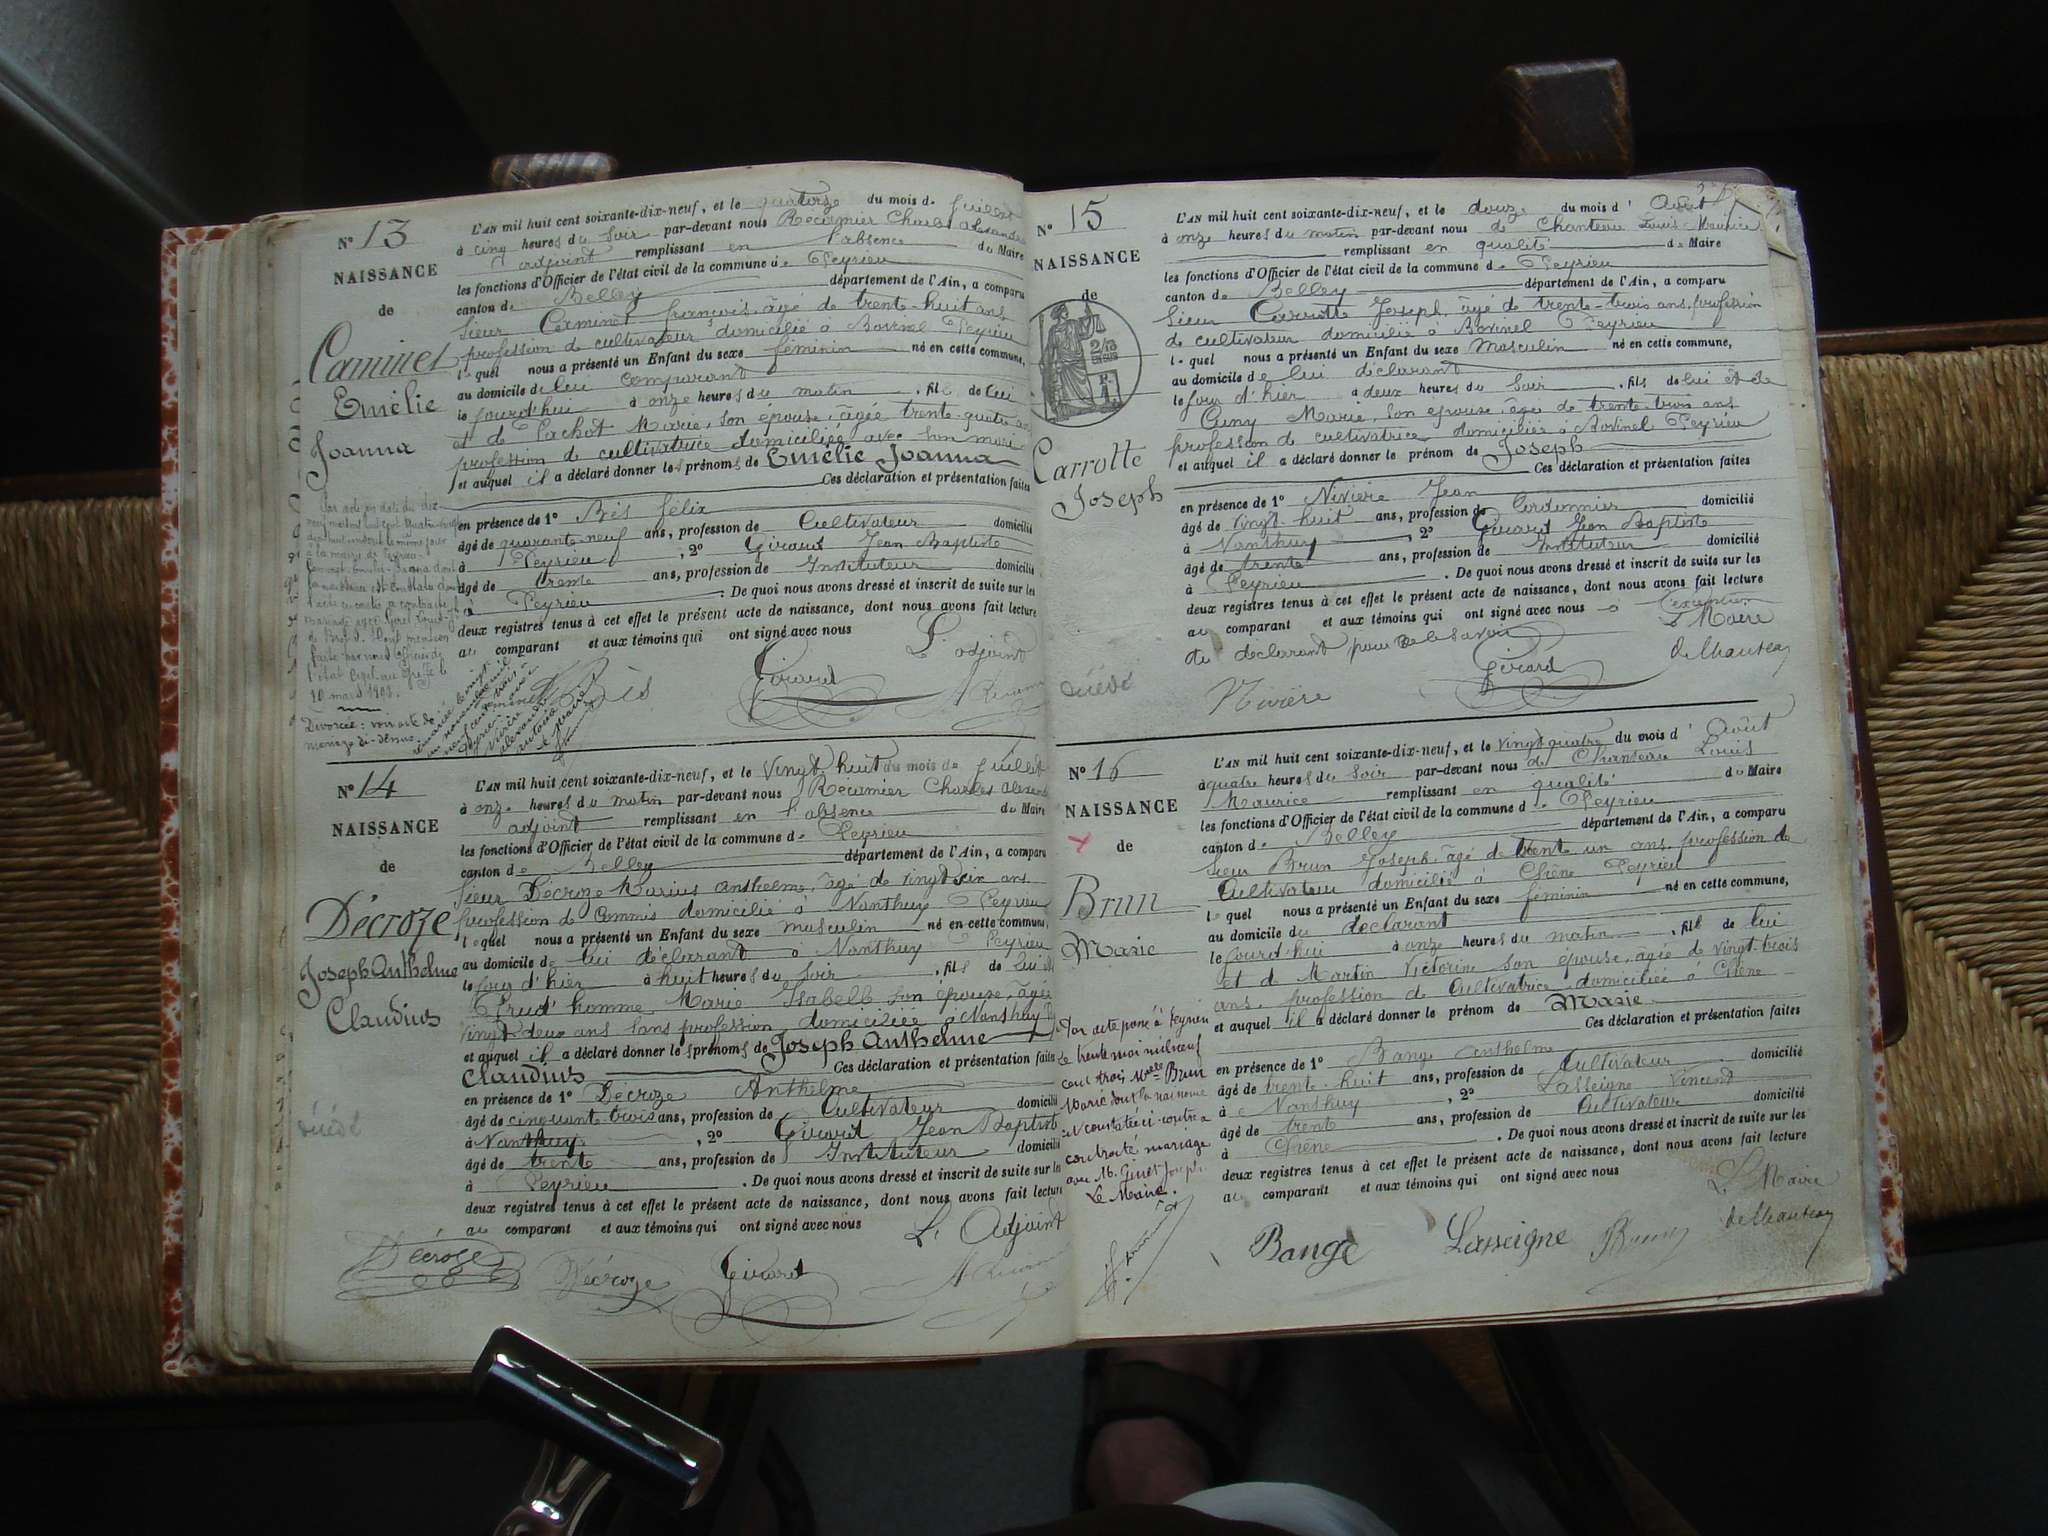 N° 13
NAISSANCE
de
Caminet
Emélie
Joanna
L'AN mil huit cent soixante-dix-neuf, et le quatorze du mois de Juillet
à cinq heures du soir par-devant nous Récamier Charles Alexandre
adjoint remplissant en l'absence du Maire
les fonctions d'Officier de l'état civil de la commune de Peyrieu
canton de Belley département de l'Ain, a comparu
Sieur Caminet françois âgé de trente-huit ans
profession de cultivateur domicilié à Bovinel Peyrieu
lequel nous a présenté un Enfant du sexe féminin né en cette commune,
au domicile de lui comparant
le jourd'hui à onze heures du matin, fils de lui
et de Pachot Marie, son épouse, âgée trente-quatre ans
profession de cultivatrice domiciliée avec son mari
et auquel il a déclaré donner les prénoms de Emélie Joanna
Ces déclaration et présentation faites
en présence de 1° Bès félix
âgé de quarante-neuf ans, profession de Cultivateur domicilié
à Peyrieu, 2° Girard Jean Baptiste
âgé de trente ans, profession de Instituteur domicilié
à Peyrieu. De quoi nous avons dressé et inscrit de suite sur les
deux registres tenus à cet effet le présent acte de naissance, dont nous avons fait lecture
au comparant et aux témoins qui ont signé avec nous
L'adjoint
Bès Girard
10 mars 1908.
Divorcée: voir acte de
mariage ci-dessus
N° 14
NAISSANCE
de
Décroze
Joseph Anthelme
Claudius
L'AN mil huit cent soixante-dix-neuf, et le vingt huit du mois de Juillet
à onze heures du matin par-devant nous Récamier Charles Alexandre
adjoint remplissant en l'absence du Maire
les fonctions d'Officier de l'état civil de la commune de Peyrieu
canton de Belley département de l'Ain, a comparu
Sieur Décroze Marius anthelme, âgé de vingt six ans
profession de Commis domicilié à Nanthuy Peyrieu
lequel nous a présenté un Enfant du sexe masculin né en cette commune,
au domicile de lui déclarant à Nanthuy Peyrieu
le jour d'hier à huit heures du soir, fils de lui et
Prud'homme Marie Isabelle son épouse, âgée
vingt deux ans sans profession domiciliée à Nanthuy
et auquel il a déclaré donner les prénoms de Joseph Anthelme
Claudius Ces déclaration et présentation faites
en présence de 1° Décroze Anthelme
âgé de cinquante trois ans, profession de Cultivateur domicilié
à Nanthuy, 2° Girard Jean Baptiste
âgé de trente ans, profession de Instituteur domicilié
à Peyrieu. De quoi nous avons dressé et inscrit de suite sur les
deux registres tenus à cet effet le présent acte de naissance, dont nous avons fait lecture
au comparant et aux témoins qui ont signé avec nous
L'Adjoint
Décroze Décroze Girard
décédé
N° 15
NAISSANCE
de
Carrotte
Joseph
L'AN mil huit cent soixante-dix-neuf, et le douze du mois d'Août
à onze heures du matin par-devant nous de Chanteau Louis Maurice
remplissant en qualité de Maire
les fonctions d'Officier de l'état civil de la commune de Peyrieu
canton de Belley département de l'Ain, a comparu
Sieur Carrotte Joseph, âgé de trente-trois ans, profession
de cultivateur domicilié à Bovinel Peyrieu
lequel nous a présenté un Enfant du sexe Masculin né en cette commune,
au domicile de lui déclarant
le jour d'hier à deux heures du soir, fils de lui et de
Cuny Marie, son épouse âgée de trente-trois ans
profession de cultivatrice domiciliée à Bovinel Peyrieu
et auquel il a déclaré donner le prénom de Joseph
Ces déclaration et présentation faites
en présence de 1° Nivière Jean
âgé de vingt-huit ans, profession de Cordonnier domicilié
à Nanthuy, 2° Girard Jean Baptiste
âgé de trente ans, profession de Instituteur domicilié
à Peyrieu. De quoi nous avons dressé et inscrit de suite sur les
deux registres tenus à cet effet le présent acte de naissance, dont nous avons fait lecture
au comparant et aux témoins qui ont signé avec nous à l'exception
du déclarant pour ne le savoir
Le Maire
Nivière Girard de Chanteau
décédé
N° 16
NAISSANCE
de
Brun
Marie
L'AN mil huit cent soixante-dix-neuf, et le vingt quatre du mois d'Août
à quatre heures du soir par-devant nous de Chanteau Louis
Maurice remplissant en qualité du Maire
les fonctions d'Officier de l'état civil de la commune de Peyrieu
canton de Belley département de l'Ain, a comparu
Sieur Brun Joseph, âgé de trent un ans, profession de
Cultivateur domicilié à Chêne Peyrieu
lequel nous a présenté un Enfant du sexe féminin né en cette commune,
au domicile du déclarant
le jourd'hui à onze heures du matin, fille de lui
et de Martin Victorine son épouse, âgée de vingt-trois
ans, profession de Cultivatrice domiciliée à Chêne
et auquel il a déclaré donner le prénom de Marie
Ces déclaration et présentation faites
en présence de 1° Bange Anthelme
âgé de trente-huit ans, profession de Cultivateur domicilié
à Nanthuy, 2° Lasseigne Vincent
âgé de trente ans, profession de Cultivateur domicilié
à Chêne. De quoi nous avons dressé et inscrit de suite sur les
deux registres tenus à cet effet le présent acte de naissance, dont nous avons fait lecture
au comparant et aux témoins qui ont signé avec nous
Le Maire
Bange Lasseigne Brun de Chanteau
Par acte passé à Peyrieu
le trente mai mil neuf
cent trois Melle Brun
Marie dont la naissance
est constatée ci-contre a
contracté mariage
avec M. Ginet Joseph
Le Maire.